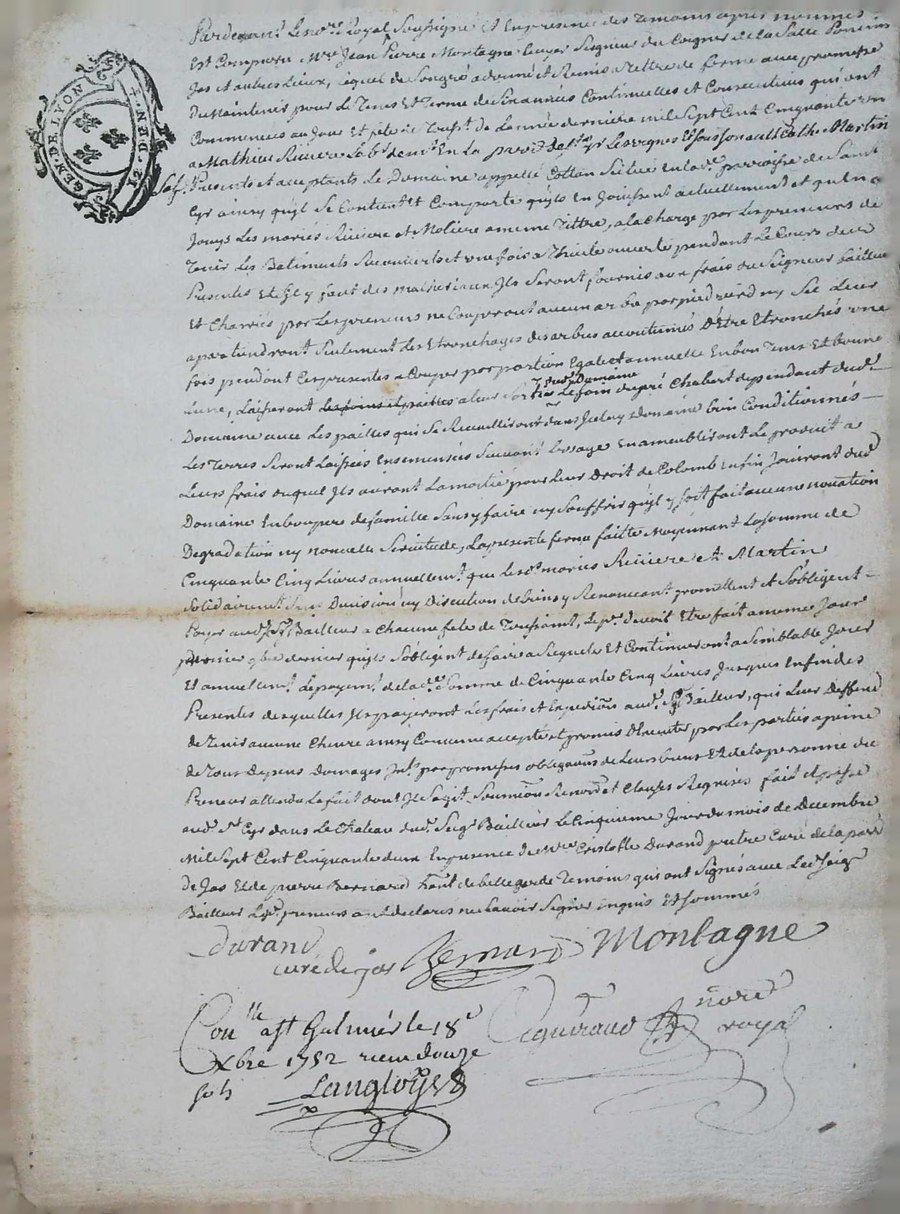 GEN. DE LYON 12 DEN.
Pardevant Le no.re Royal Soussigné et En presence des Temoins apres nommés
Est Comparu M.re Jean Pierre Montagne Ecuyer Seigneur du Coignet de la Salle Poncins
Jas et autres Lieux, Lequel de Son gré a donné et Remis a Tittre de ferme avec promesse
De Maintenir pour Le Tems Et Terme de Six années Continuelles et Consecutives qui ont
Commencées au Jour Et fête de Touss.t de L'année derniere mil Sept Cent Cinquante un
a Mathieu Riviere Lab.r dem.t En La par.se de S.t Cyr Les vignes Et Cath. Martin
Sa f. Presents et acceptants Le Domaine appellé En lad. parroisse de Saint
Cyr ainsy qu'il Se Contient Et Comporte qu'ils En Joüissent actuellement et qu'en a
Jouys Les mariés Riviere et Moliere a meme Tittre, a la Charge par Les preneurs de
Tenir Les Batiments Recouverts et une fois a Thuile ouverte pendant Le Cours des
Presentes Et S'il y faut des matieriaux Ils Seront fournis aux frais du Seigneur Bailleur
Et Charriés par Les preneurs ne Couperont aucun arbre par pied verd ny Sec Leur
apartiendront Seulement Les Etronchages des arbres accoutumés D'Etre Etronchés une
fois pendant Ces presentes a Couper par portion Egale et annuelle En bon Tems Et bonne
Lune, Laisseront les foins et pailles a leur Sortie Le foin du pré Chabert dependant dud.
dud. Domaine
Domaine avec Les pailles qui Se Recueilliront dans Iceluy Domaine bien Conditionnés
Les Terres Seront Laissées Ensemencées Suivant L'usage En ameubliront Le produit a
Leurs frais duquel Ils auront La moitié pour Leur Droit de Colomb Enfin Jouiront dud.
Domaine En bon pere de famille Sans y faire ny Souffrir qu'il y Soit fait aucune novation
Degradation ny nouvelle Servitude, La presente ferme faitte Moyennant La Somme de
Cinquante Cinq Livres annuellem.t que Lesd.s mariés Riviere et Martin
Solidairem.t Sans Division ny Discution de biens y Renonceant promettent et S'obligent
Payer aud. S.r Bailleur a Chacune fête de Toussaint, Le p.r devoit Etre fait a meme Jour
premier 9bre dernier qu'ils S'obligent de faire a Requete Et Continueront a Semblable Jour
Et annuellem.t Le payem.t de lad. Somme de Cinquante Cinq Livres Jusques En fin des
Presentes desquelles Ils payeront Les frais et Expedition aud. Sg.r Bailleur, qui Leur deffend
de Tenir aucune Chevre ainsy Convenu accepté et promis Observer par Les parties a peine
de Tous Depens Domages Int.s par promesses obligations de Leurs biens Et de La personne du
Preneur attendu Le fait dont Il S'agit Soumions Renond. et Clauses Requises fait et passé
aud. S.t Cyr dans Le Chateau dud. Seig.r Bailleur Le Cinquieme Jour du mois de Decembre
Mil Sept Cent Cinquante deux En presence de M.re Cristofle Durand pretre Curé de la par.se
de Jas Et de pierre Bernard hab.t de bellegarde Temoins qui ont Signés avec Led. Seig.r
Bailleur Les d. preneurs ont declarés ne Savoir Signer Enquis Et Sommés
Durand
curé de jas Bernard Montagne
no.re
royal
Con.lle a S.t Galmier le 18.e
Xbre 1752 reçu douze
sols Langloys